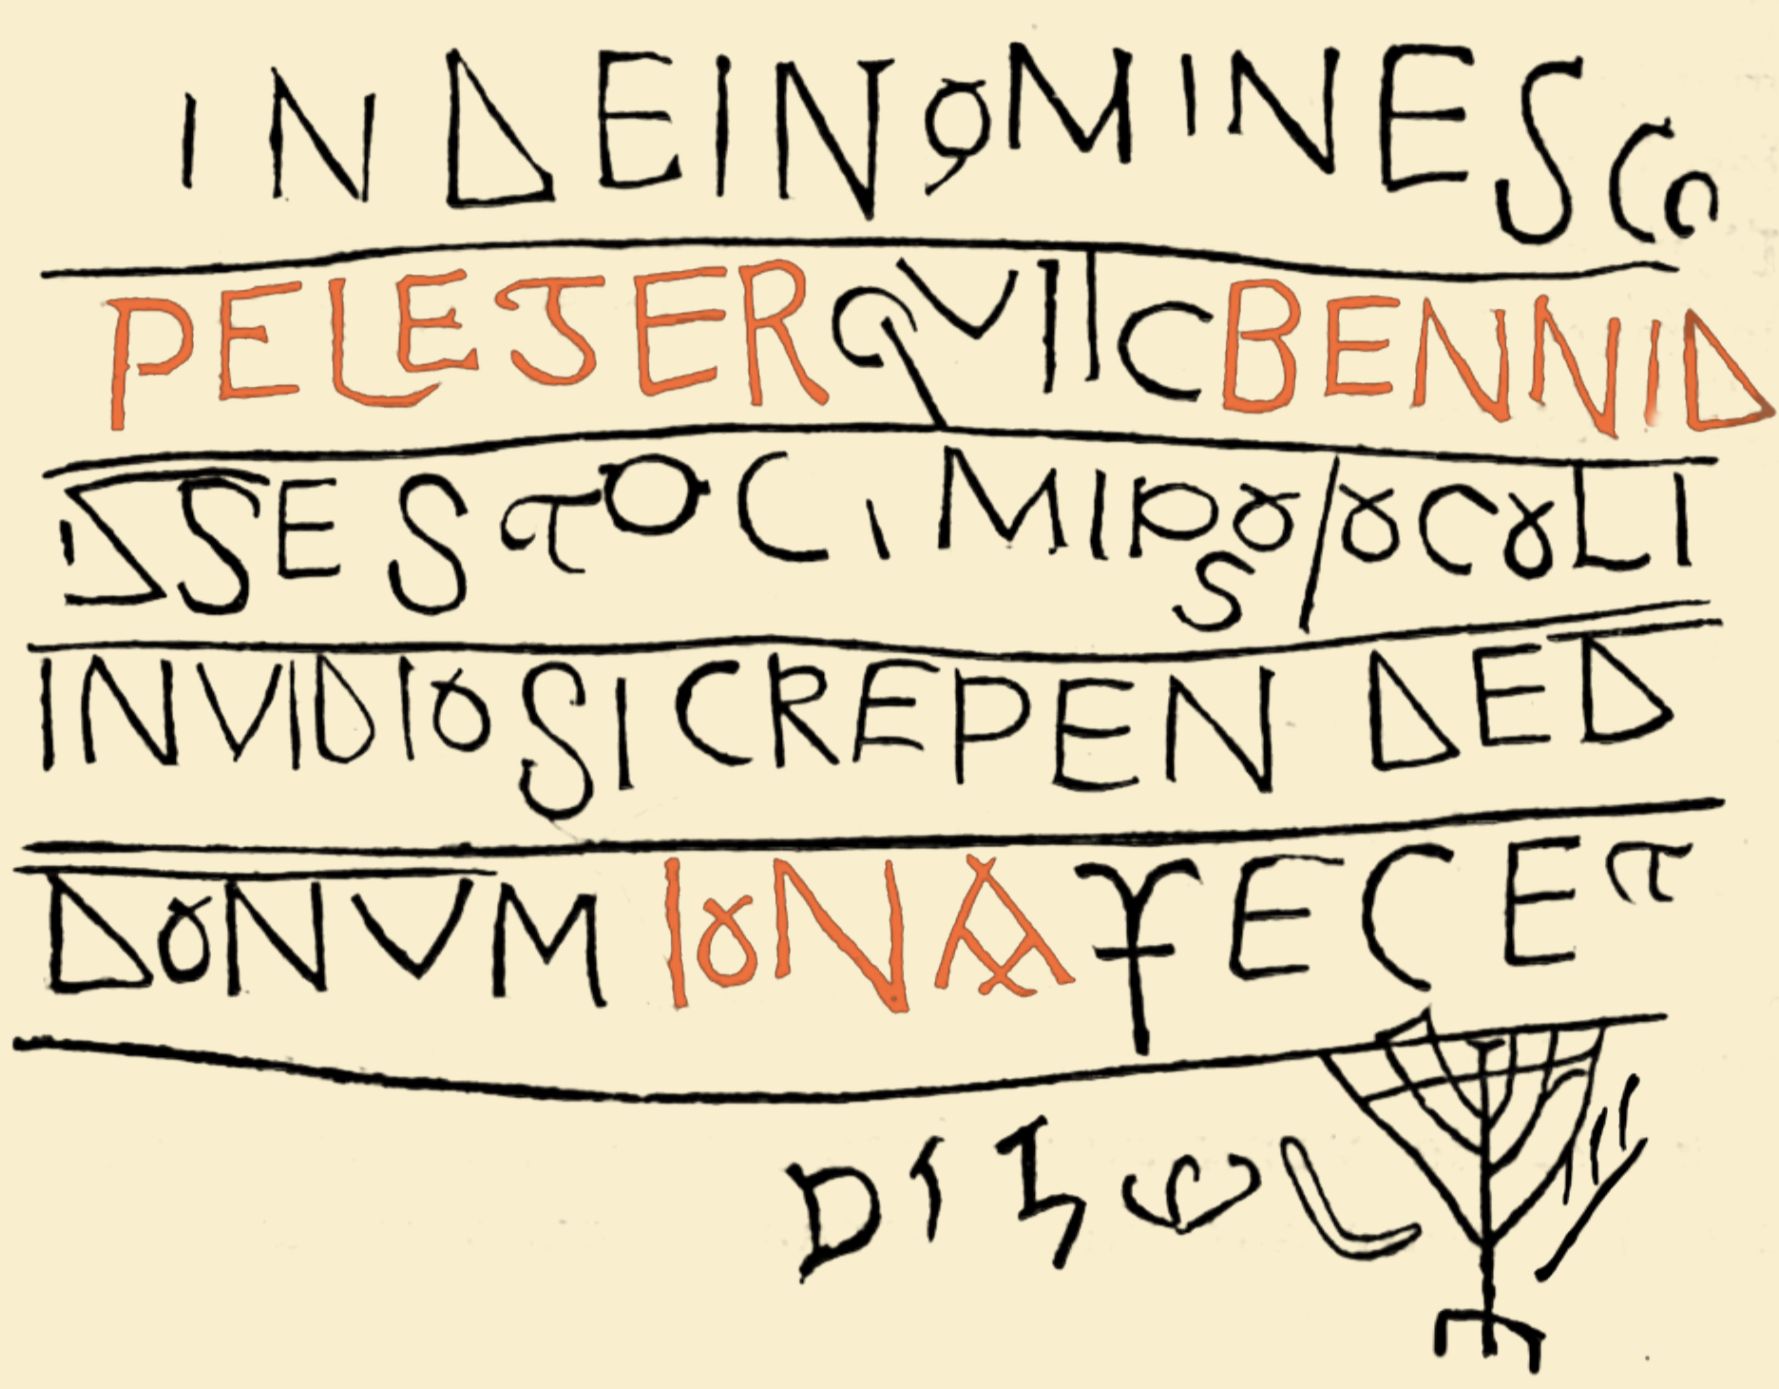 IN DEI NOMINE SCO
PELEGER QVI IC BENNID
DS ESTO CIM IPSO / OCOLI
INVIDIOSI CREPEN DE D
DONVM IONA FECET
שלום